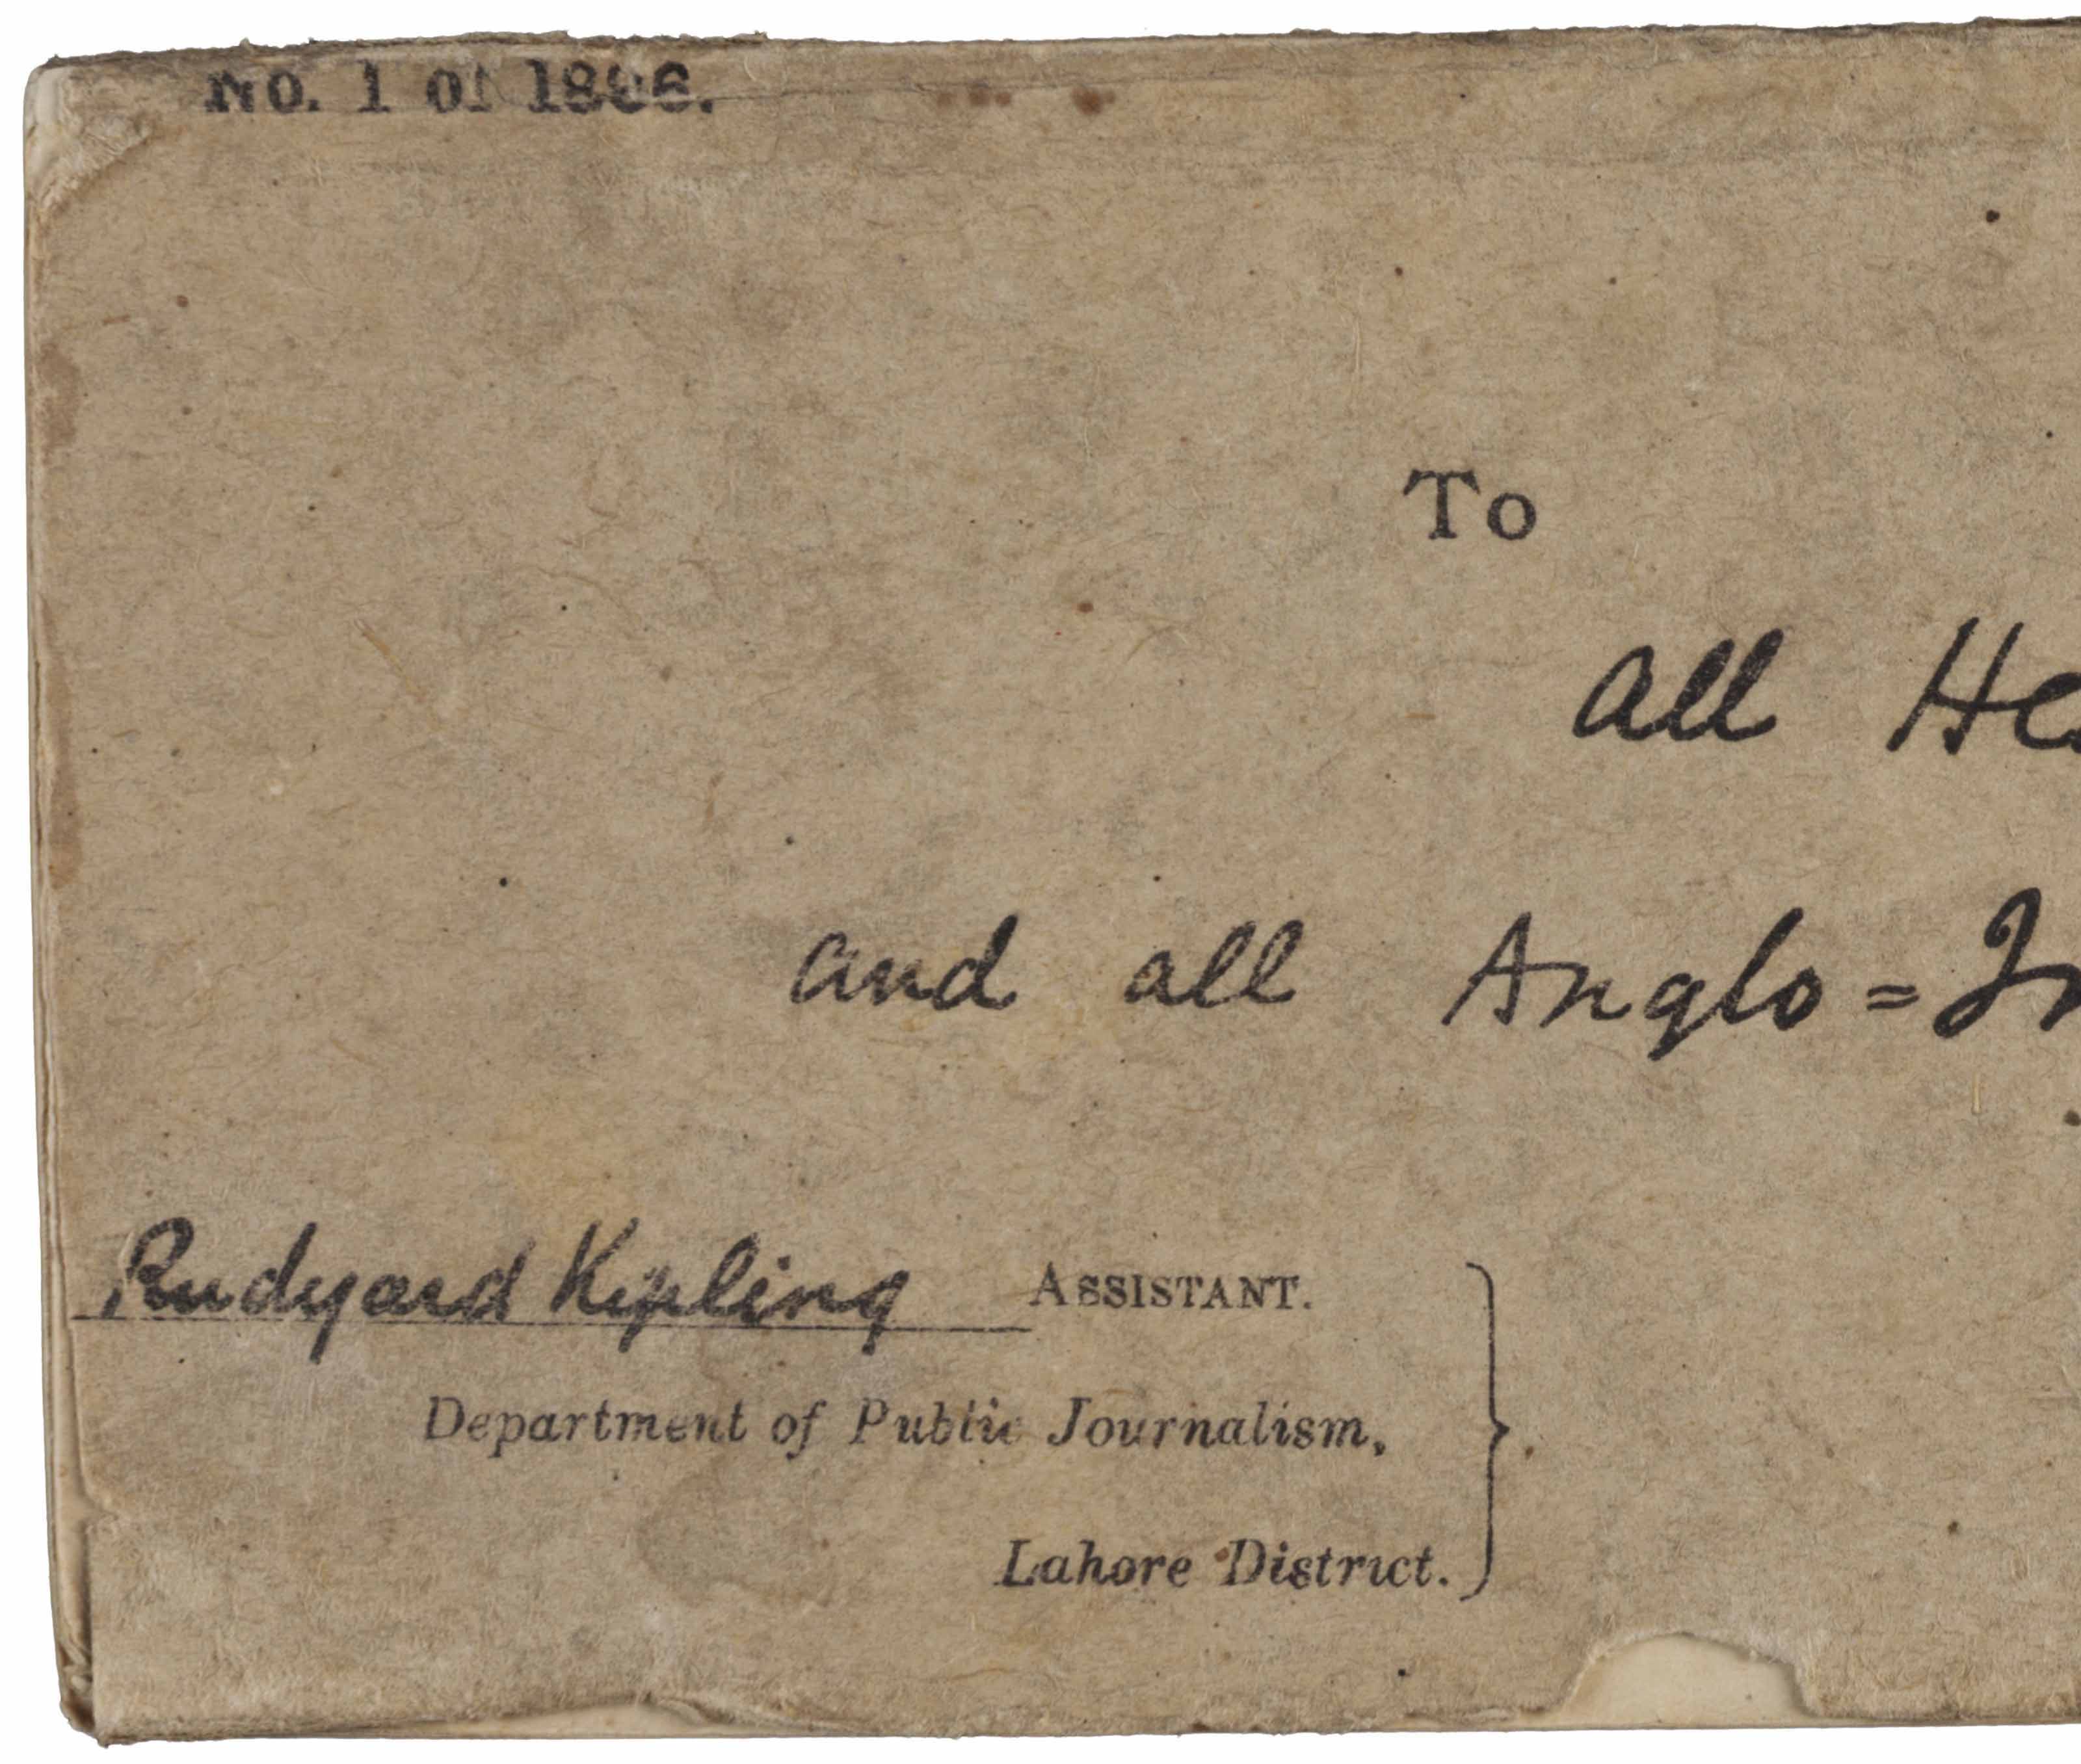 No. 1 of 1886.
To
all
and all Anglo=
Rudyard Kipling ASSISTANT.
Department of Public Journalism,
Lahore District.